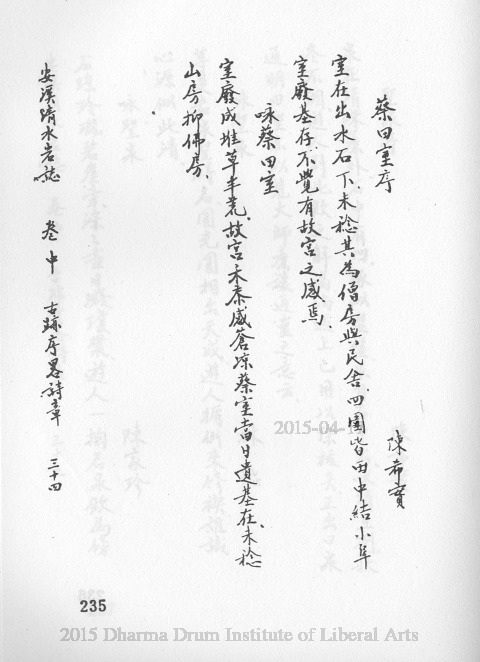 蔡田室序
陳希實
室在出水石下、未稔其為僧房與民舍、四圍皆田中結小阜
室廢基存不覺有故宮之感焉、
咏蔡田室
室廢成堆草半荒、故宮禾黍感蒼涼蔡室當日遺基在、未稔
山房抑佛房、
安溪清水岩誌 卷中 古蹟序畧詩章 三十四
235
2015-04-1
2015 Dharma Drum Institute of Liberal Arts